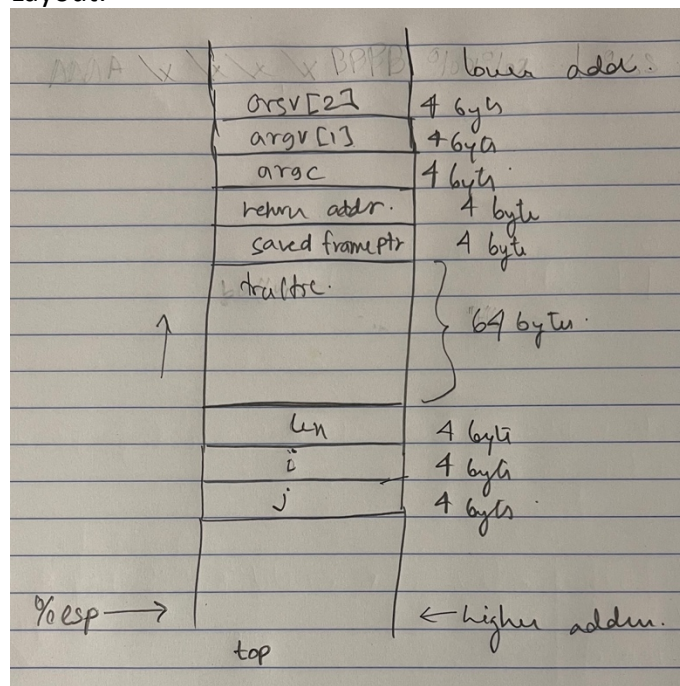 Layout:
lower addr.
arsv[2] 4 byts
argv[1] 4 byts
argc 4 byts
return addr. 4 byte
saved frameptr 4 byte
64 bytes.
len 4 byts
i 4 byts
j 4 byts
%esp → ← higher addrs.
top